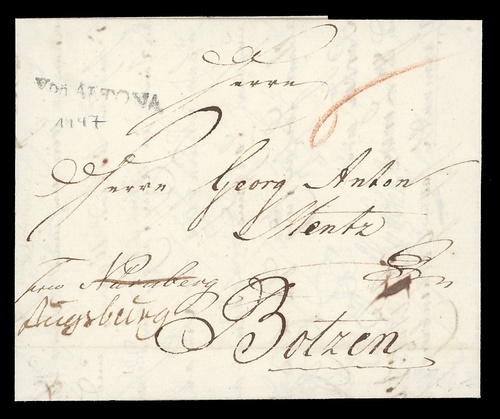 Herrn
VON ALTONA
1797
Herrn Georg Anton
Mentz
frco Nürnberg
Augsburg
Botzen